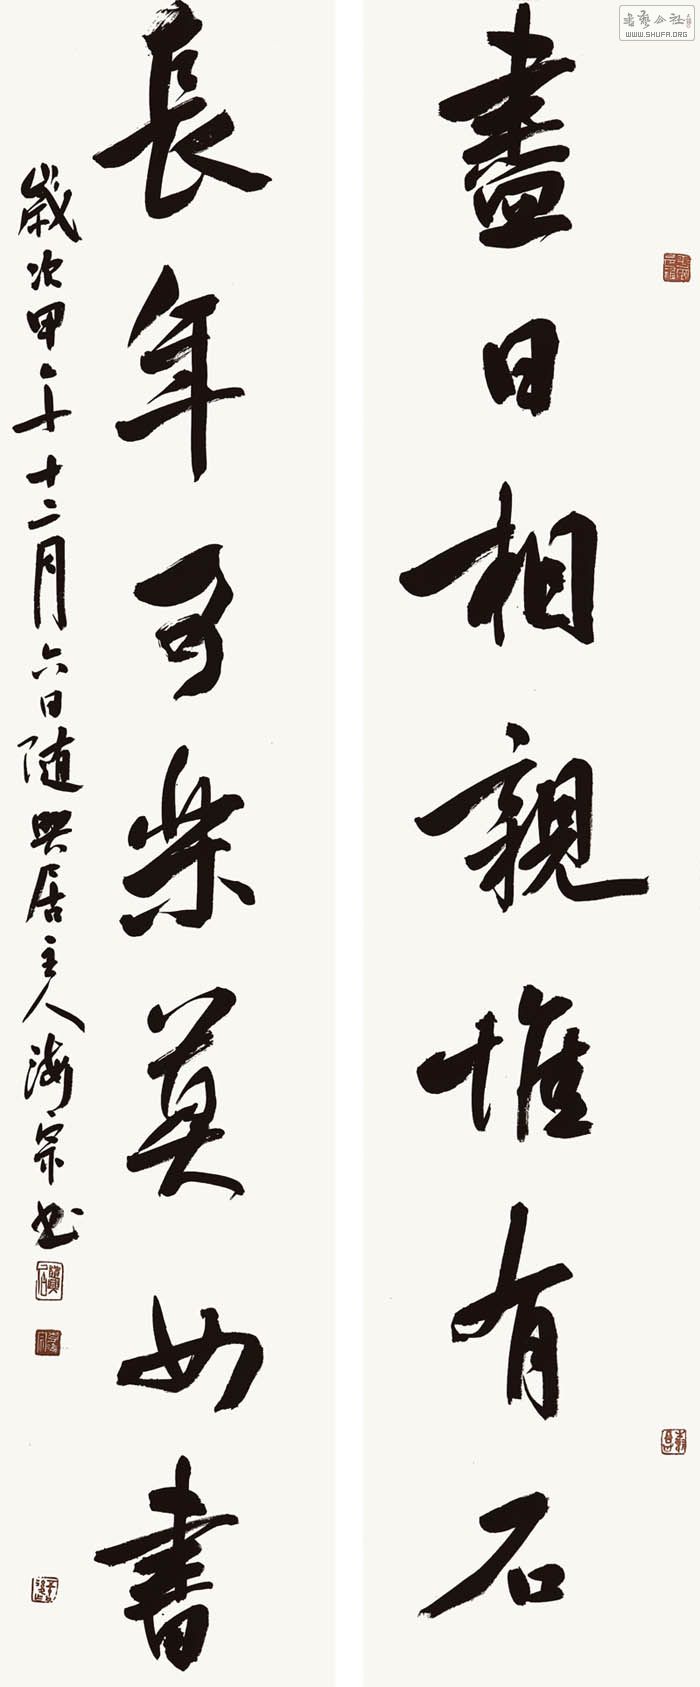 盡日相親惟有石
長年可樂莫如書
歲次甲午十二月六日随興居主人海宗书
书艺公社
WWW.SHUFA.ORG